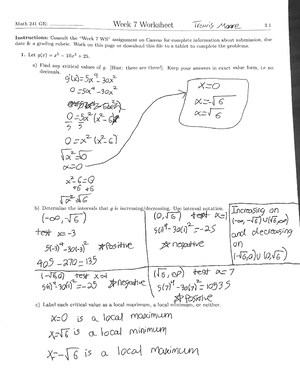 Math 241 GE: Week 7 Worksheet Travis Moore 3.1
Instructions: Consult the "Week 7 WS" assignment on Canvas for complete information about submission, due
date & grading rubric. Work on this page or download this file to a tablet to complete the problems.
1. Let g(x) = x⁵ − 10x³ + 25.
a) Find any critical values of g. [Hint: there are three!]. Keep your answers in exact value form, i.e no
decimals.
g'(x) = 5x⁴ - 30x²
0 = 5x⁴ - 30x²
0 = 5x² (x² - 6)
5 5
0 = x² (x² - 6)
√x² = √0
x = 0
x² - 6 = 0
+6 +6
√x² = √6
x = 0
x = -√6
x = √6
b) Determine the intervals that g is increasing/decreasing. Use interval notation.
(-∞, -√6)
test x = -3
5(-3)⁴ - 30(-3)² positive
405 - 270 = 135
(0, √6) test x = 1
5(1)⁴ - 30(1)² = -25
negative
Increasing on
(-∞, -√6) U (√6, ∞)
and decreasing
on
(-√6, 0) U (0, √6)
(-√6, 0) test x = -1
= -25 negative
(√6, ∞) test x = 7
5(7)⁴ - 30(7)² = 10535
positive
c) Label each critical value as a local maximum, a local minimum, or neither.
x = 0 is a local maximum
x = √6 is a local minimum
x = -√6 is a local maximum